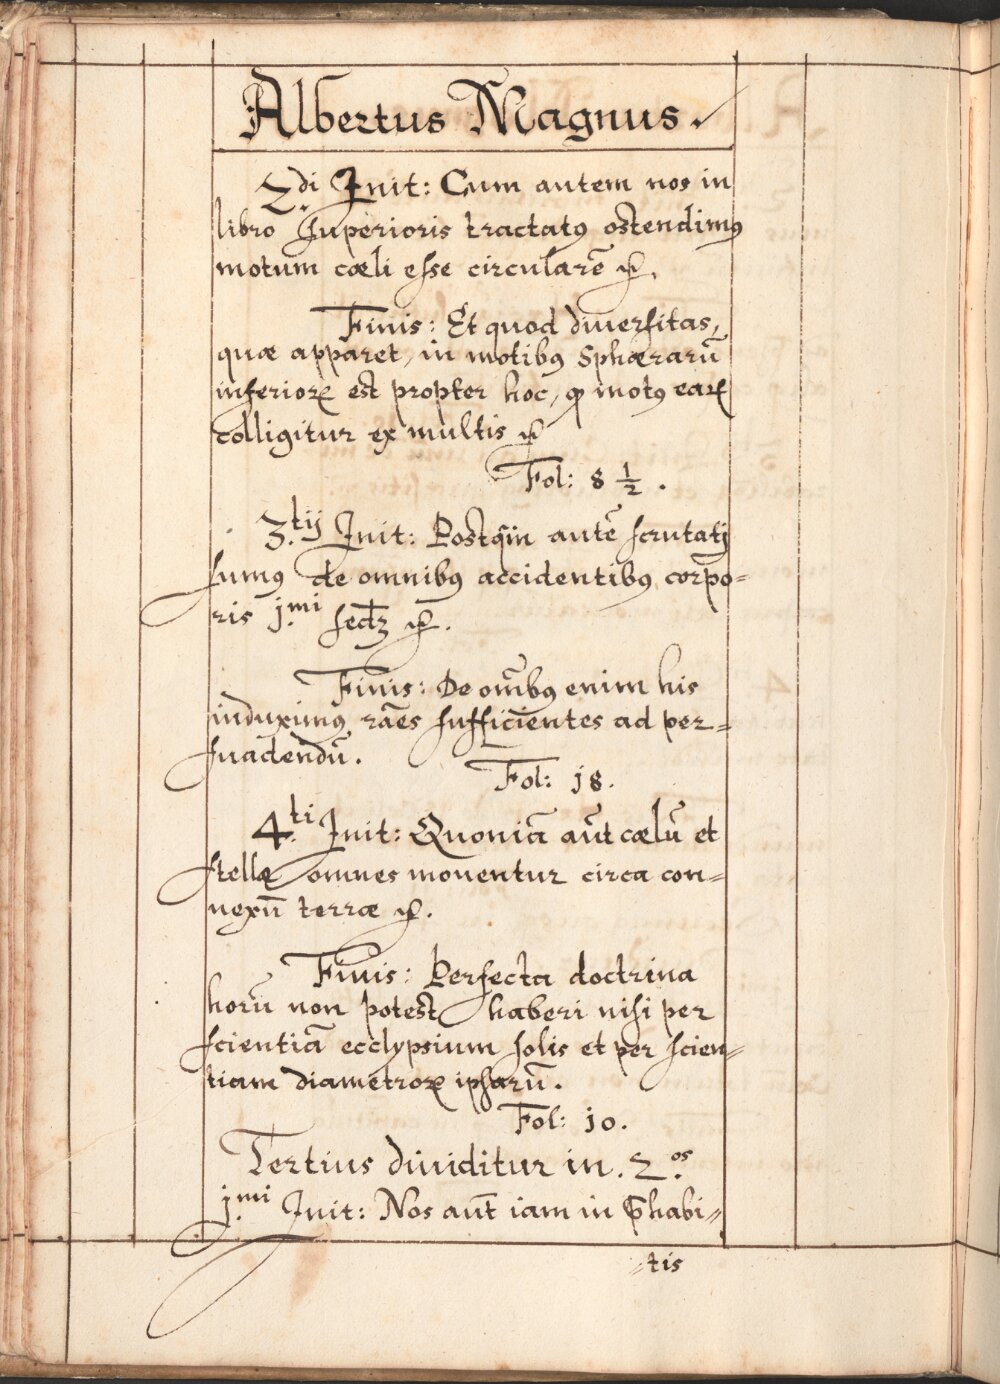 Albertus Magnus.
2.di Init: Cum autem nos in
libro superioris tractatꝰ ostendimꝰ
motum cæli esse circularē ꝛc̃.
Finis: Et quod diuersitas,
quæ apparet, in motibꝰ Sphærarū
inferioꝝ est propter hoc, ꝙ motꝰ eaꝝ
colligitur ex multis ꝛc̃
Fol: 8 ½.
3.tij Init: Postq̃m autē scrutatj
sumꝰ de omnibꝰ accidentibꝰ corpo=
ris j.mi sedꝫ ꝛc̃.
Finis: De om̄ibꝰ enim his
induximꝰ rāes sufficientes ad per=
suadendū.
Fol: j8.
4.ti Init: Quoniā aūt cælū et
stellæ omnes mouentur circa con=
nexū terræ ꝛc̃.
Finis: Perfecta doctrina
horū non potest haberi nisi per
scientiā ecclypsium solis et per scien=
tiam diametroꝝ ipsarū.
Fol: jo.
Tertius diuiditur in. 2.os
j.mi Init: Nos aūt iam in p̄habi=
=tis